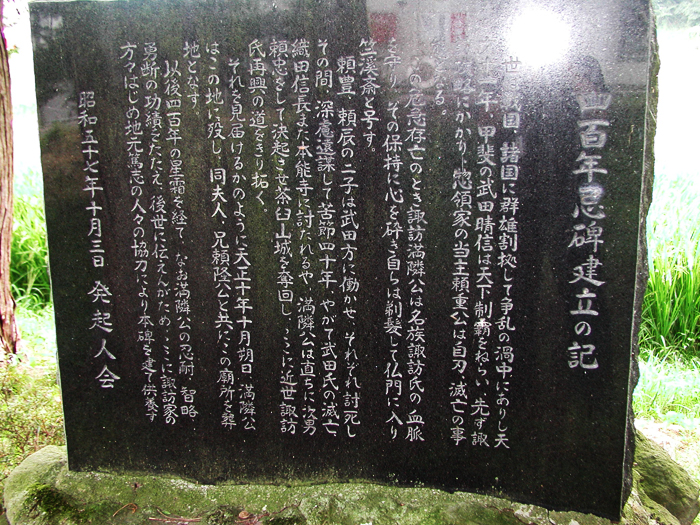 四百年忌碑建立の記
世 戦国、諸国に群雄割拠して争乱の渦中にありし天
十一年、甲斐の武田晴信は天下制覇をねらい、先ず諏
略にかかり、惣領家の当主頼重公は自刃、滅亡の事
る。
の危急存亡のとき諏訪満隣公は名族諏訪氏の血脈
を守り、その保持に心を砕き自らは剃髪して仏門に入り
竺渓斎と号す。
頼豊、頼辰の二子は武田方に働かせ、それぞれ討死し
その間、深慮遠謀して苦節四十年、やがて武田氏の滅亡、
織田信長また本能寺に討たれるや、満隣公は直ちに次男
頼忠をして決起させ茶臼山城を奪回し、ここに近世諏訪
氏再興の道をきり拓く。
それを見届けるかのように天正十年十月朔日、満隣公
はこの地に歿し、同夫人、兄頼隆公と共にこの廟所を葬
地となす。
以後四百年の星霜を経て、なお満隣公の忍耐、智略
勇断の功績をたたえ、後世に伝えんがため、ここに諏訪家の
方々はじめ地元篤志の人々の協力により本碑を建て供養す
昭和五十七年十月三日 発起人会